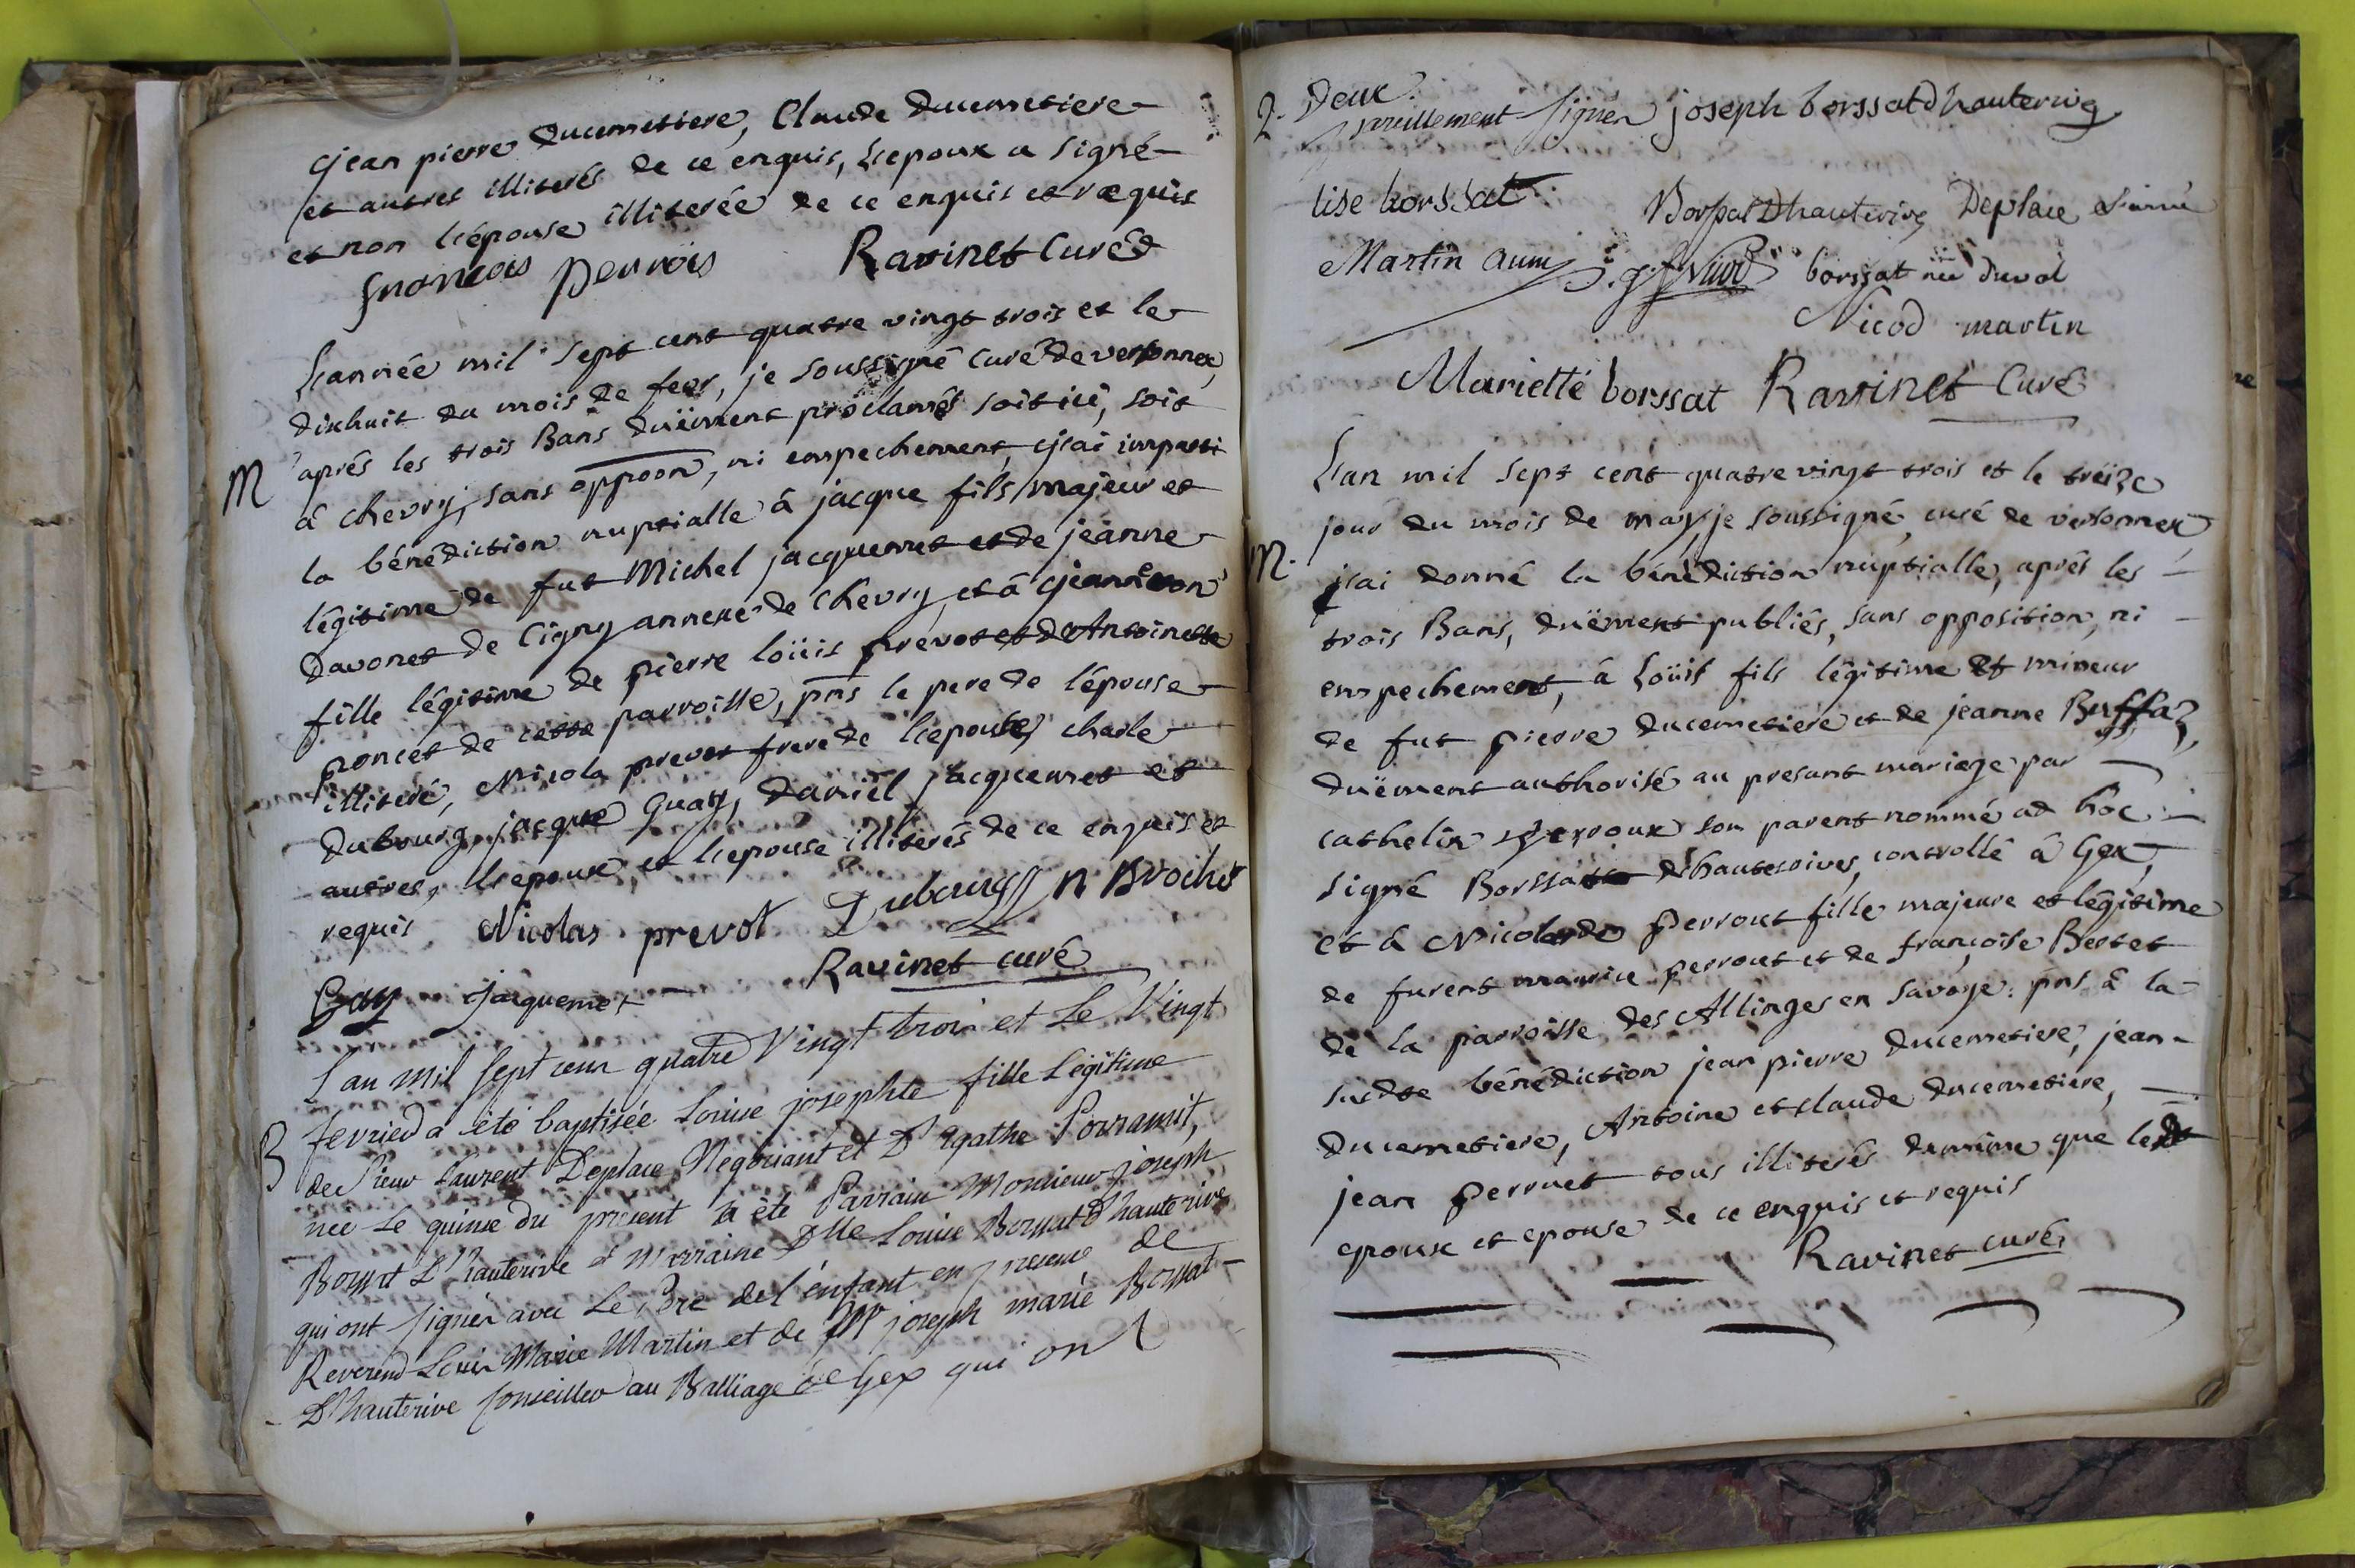 jean pierre ducemetiere, Claude ducemetiere
et autres illiterés de ce enquis, L'epoux a signé
et non L'épouse illiterée de ce enquis et requis
francois perrois Ravinet Curé
L'année mil sept cent quatre vingt trois et le
dixhuit du mois de fevr, je soussigné curé de versonnex,
aprés les trois Bans duëment proclamés soit ici, soit
M à chevry, sans oppoon, ni empechement, j'ai imparti
la bénédiction nuptialle à jacque fils majeur et
légitime de fut Michel jacquemet et de jeanne
davonet de Cigny annexe de chevry, et à jeanneton
fille légitime de pierre loüis prevot et d'Antoinette
poncet de cette parroisse, pns le pere de l'épouse
illiteré, Nicola prevot frere de l'epouse, charle
dubourg, jacque Guay, daniel jacquemet et
autres, L'epoux et L'epouse illiterés de ce enquis et
requis Nicolas prevot Dubourg n Brochet
Gay jacquemet Ravinet curé
L'an mil sept cent quatre Vingt trois et Le Vingt
B fevrier a été baptisée Louise josephte fille Légitime
de Sieur Laurent Deplace Negotiant et De agathe
née Le quinze du present a été Parrain Monsieur joseph
Borssat D'hauterive et Marraine Dlle Louise Borssat D'hauterive
qui ont signés avec Le Pere de l'enfant en presence de
Reverend Louis Marie Martin et de Mr joseph marie Borssat
D'hauterive Conseiller au Balliage de Gex qui ont
2. Deux.
pareillement signés joseph borssat dhauterive
lise borssat Borssat Dhauterive Deplace
Martin borssat née duval
Nicod martin
Mariette borssat Ravinet Curé
L'an mil sept cent quatre vingt trois et le treize
jour du mois de may, je soussigné curé de versonnex
M. j'ai donné la bénédiction nuptialle, aprés les
trois Bans, duëment publiés, sans opposition, ni
empechement, à Loüis fils légitime et mineur
de fut pierre ducemetiere et de jeanne Buffaz,
duëment authorisé au present mariage par
cathelin perroux son parent nommé ad hoc
signé Borssat d'hauterive, controllé à Gex,
et à Nicolarde perrout fille majeure et légitime
de furent maurice perrout et de françoise Bettet
de la parroisse des Allinges en savoye: pns à la
susdte bénédiction jean pierre ducemetiere, jean
ducemetiere, Antoine et claude ducemetiere,
jean perruet tous illiterés de même que lesdts
epoux et epouse de ce enquis et requis
Ravinet curé,